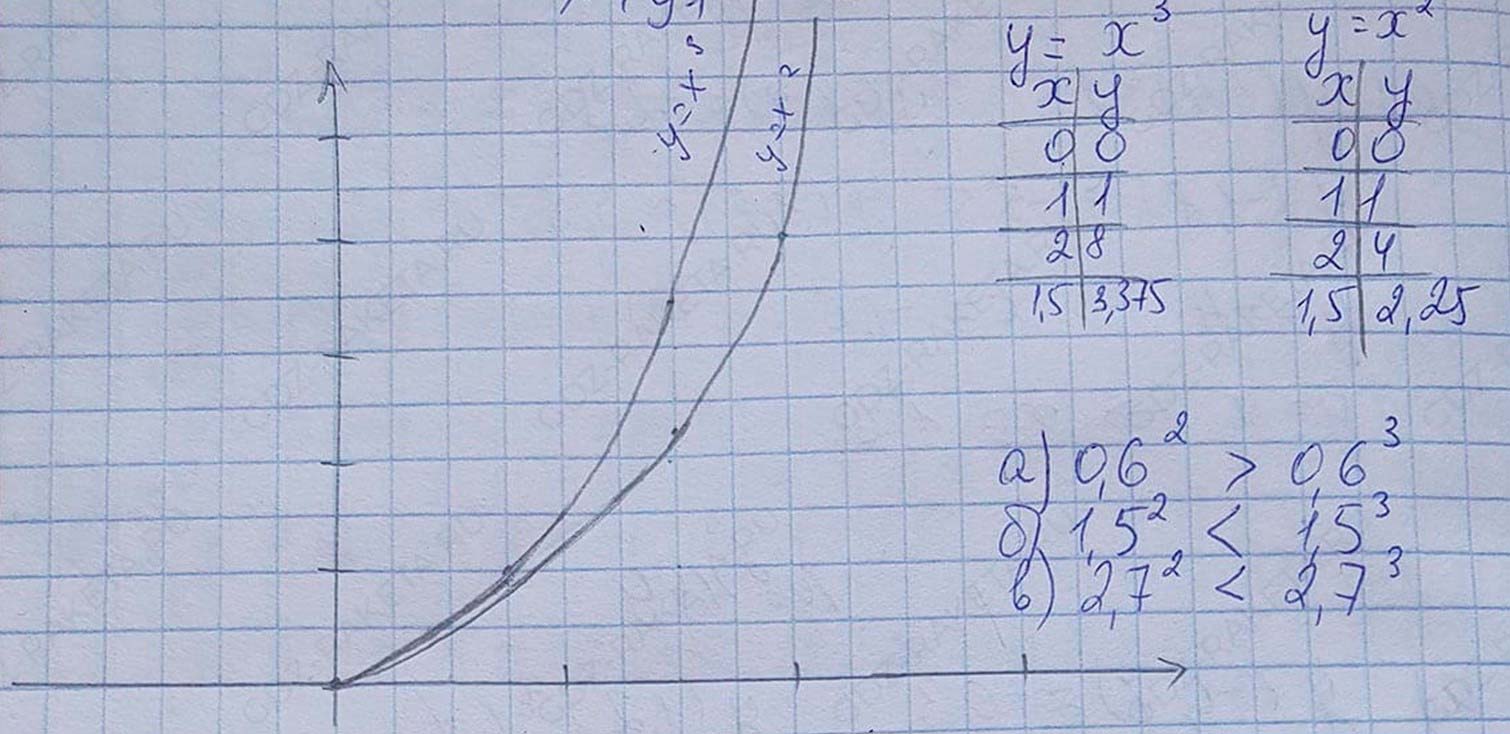 y = x³
y = x²
y = x³
x y
0 0
1 1
2 8
1,5 3,375
y = x²
x y
0 0
1 1
2 4
1,5 2,25
а) 0,6² > 0,6³
б) 1,5² < 1,5³
в) 2,7² < 2,7³